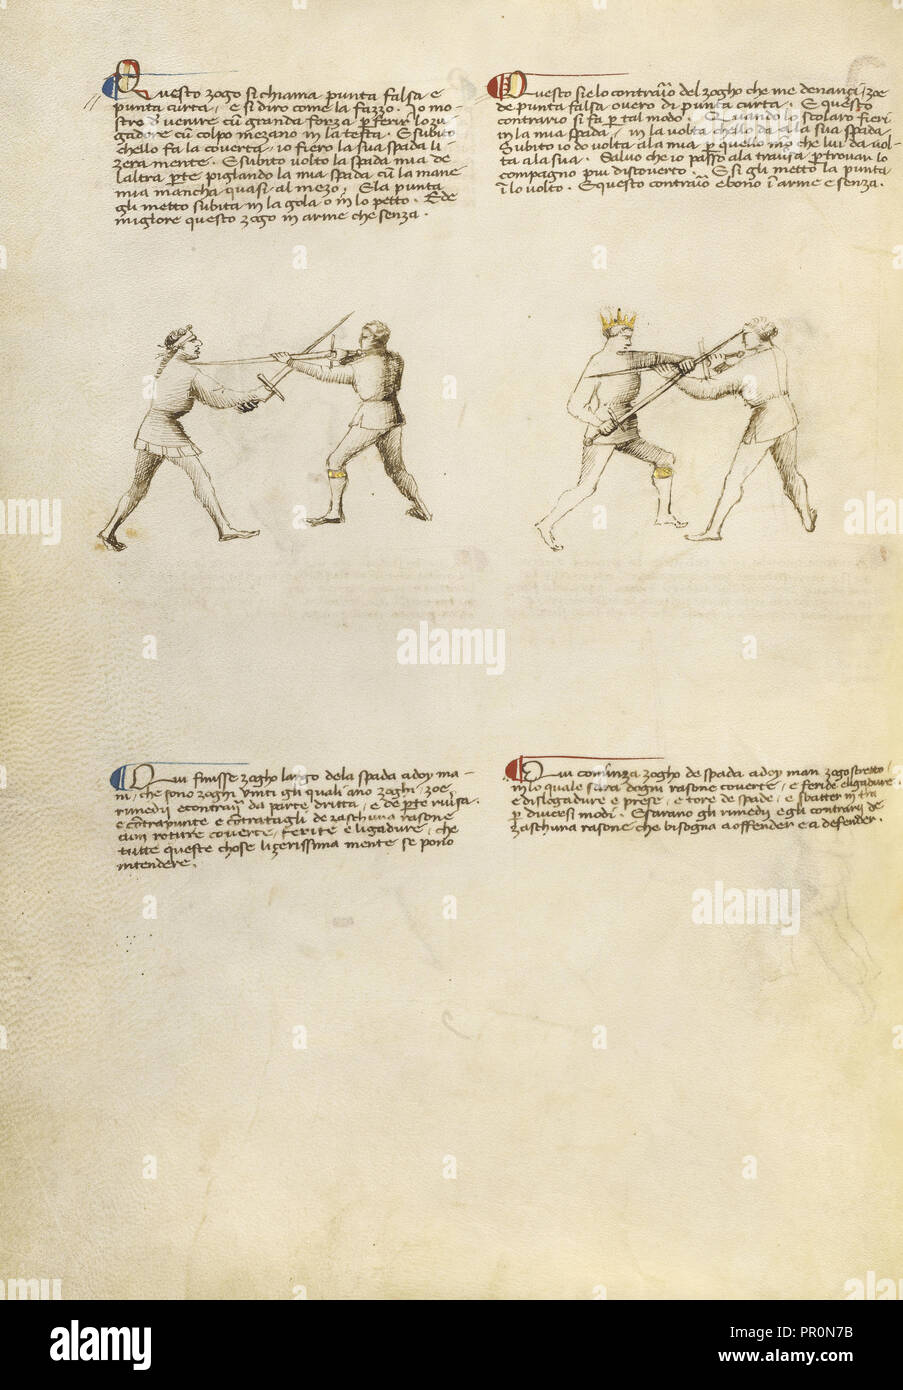 Questo zogo si chiama punta falsa e
punta curta, e si diro come la fazzo. Io mo-
stro d' venire cũ granda forza ꝑ ferir lo zu-
gadore cũ colpo mezano in la testa. E subito
ch'ello fa la coverta, io fiero la sua spada li-
zera mente. E subito volto la spada mia de
l'altra ꝑte piglando la mia spada cũ la mane
mia mancha quasi al mezo. E la punta
gli metto subita in la gola o in lo petto. E de
miglore questo zogo in arme che senza.
Questo si e lo contrario del zogho che me denanci, zoe
de punta falsa overo di punta curta. E questo
contrario si fa ꝑ tal modo. Quando lo scolaro fieri
in la mia spada, in la volta ch'ello da a la sua spada
Subito io do volta a la mia ꝑ quello mo che lui da vol-
ta a la sua. Salvo che io passo a la traũsa ꝑ trovar lo
compagno piu discoverto. E si gli metto la punta
ĩ lo volto. E questo contrario e bono ĩ arme e senza.
Qui finisse zogho largo dela spada a doy ma-
ni, che sono zoghi uniti gli quali ano zoghi, zoe
rimedii e contrarii da parte dritta, e de ꝑte riversa.
e cõtrapunte e cõtratagli de zaschuna rasone
cum roture coverte, ferite e ligadure, che
tutte queste chose lizerissima mente se pono
intendere.
Qui cominza zogho de spada a doy man zogo stretto,
in lo quale sara d'ogni rasone coverte, e feride e ligadure
e dislogadure e prese, e tore de spade, e sbatter in tra
ꝑ diversi modi. E sarano gli rimedii e gli contrarii de
zaschuna rasone che bisogna a offender e a defender.
alamy
alamy
Image ID: PR0N7B
www.alamy.com